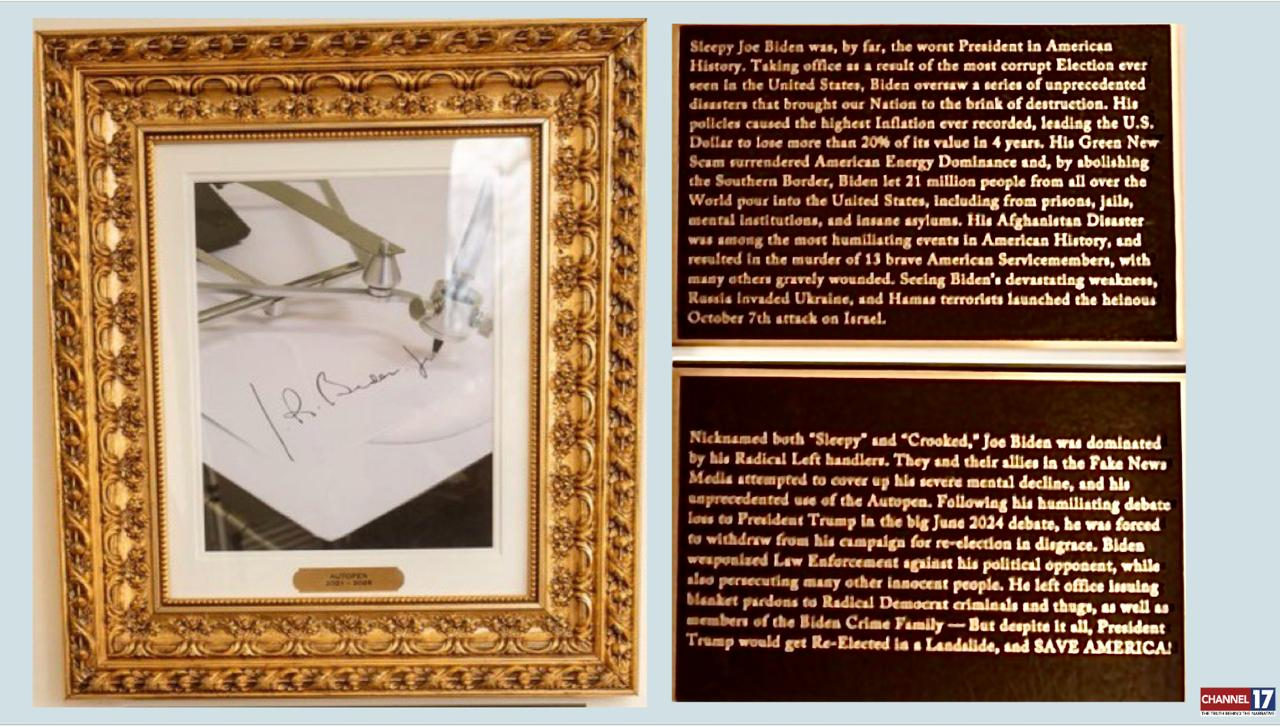 J. R. Biden Jr
AUTOPEN
Sleepy Joe Biden was, by far, the worst President in American
History. Taking office as a result of the most corrupt Election ever
seen in the United States, Biden oversaw a series of unprecedented
disasters that brought our Nation to the brink of destruction. His
policies caused the highest Inflation ever recorded, leading the U.S.
Dollar to lose more than 20% of its value in 4 years. His Green New
Scam surrendered American Energy Dominance and, by abolishing
the Southern Border, Biden let 21 million people from all over the
World pour into the United States, including from prisons, jails,
mental institutions, and insane asylums. His Afghanistan Disaster
was among the most humiliating events in American History, and
resulted in the murder of 13 brave American Servicemembers, with
many others gravely wounded. Seeing Biden's devastating weakness,
Russia invaded Ukraine, and Hamas terrorists launched the heinous
October 7th attack on Israel.
Nicknamed both "Sleepy" and "Crooked," Joe Biden was dominated
by his Radical Left handlers. They and their allies in the Fake News
Media attempted to cover up his severe mental decline, and his
unprecedented use of the Autopen. Following his humiliating debate
loss to President Trump in the big June 2024 debate, he was forced
to withdraw from his campaign for re-election in disgrace. Biden
weaponized Law Enforcement against his political opponent, while
also persecuting many other innocent people. He left office issuing
blanket pardons to Radical Democrat criminals and thugs, as well as
members of the Biden Crime Family — But despite it all, President
Trump would get Re-Elected in a Landslide, and SAVE AMERICA!
CHANNEL 17
THE TRUTH BEHIND THE NARRATIVE